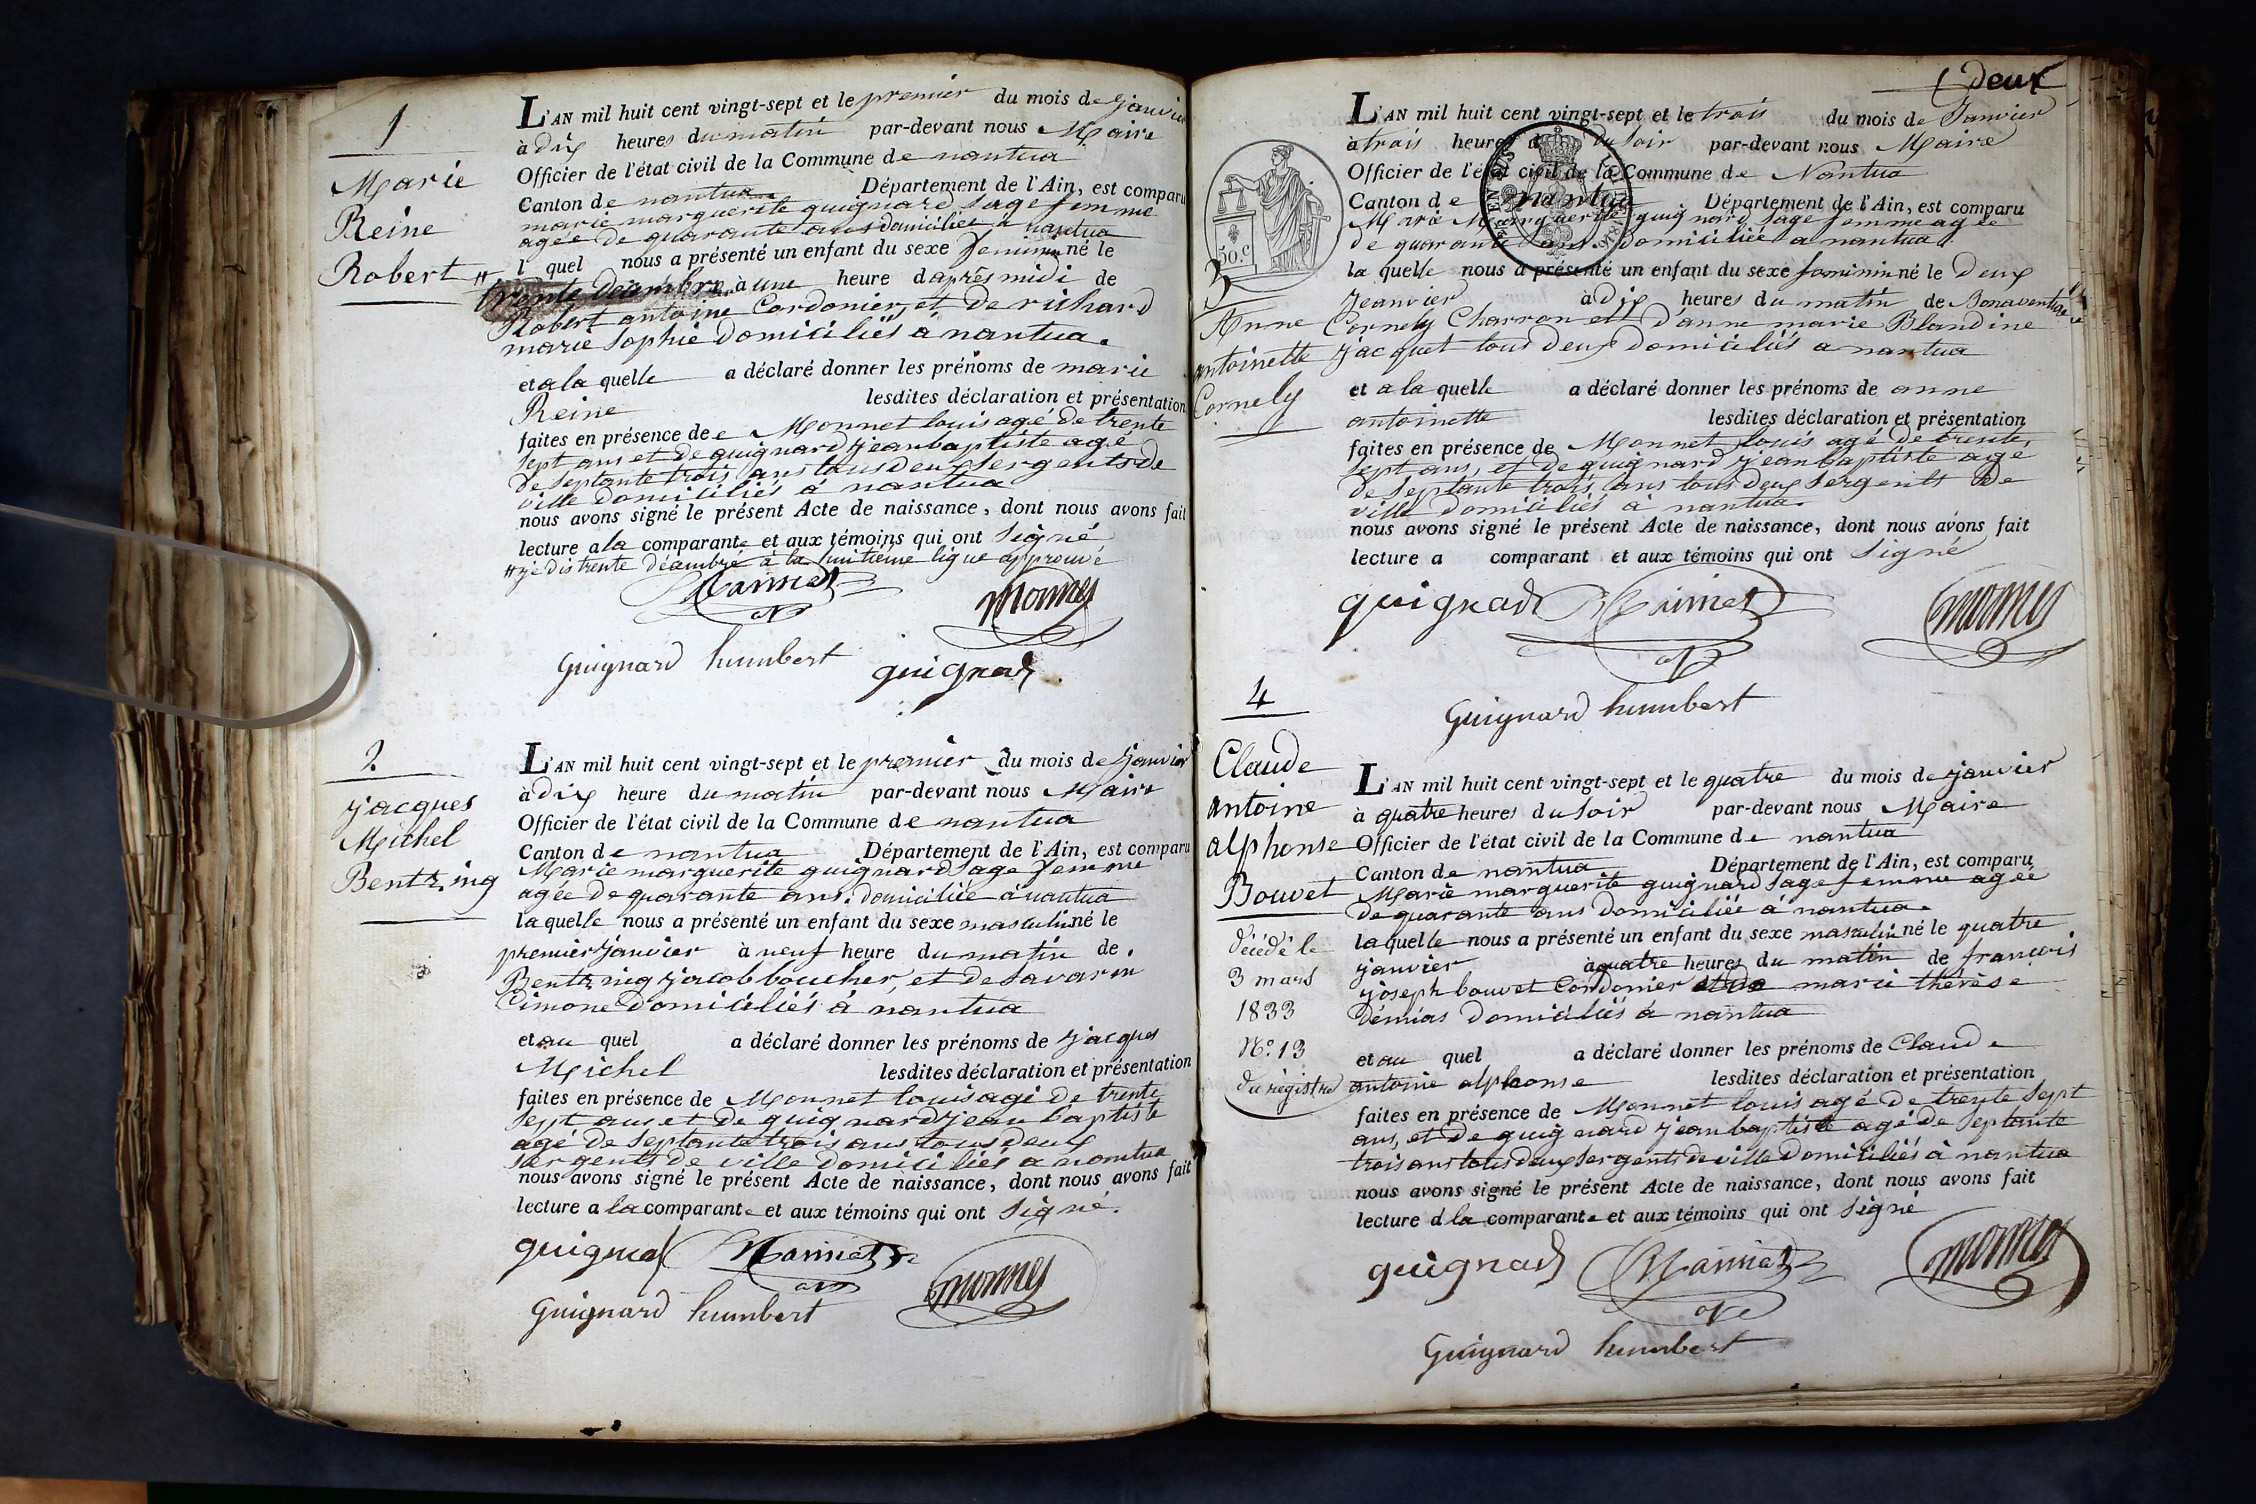 1
Marie
Reine
Robert
L'AN mil huit cent vingt-sept et le premier du mois de janvier
à dix heures du matin par-devant nous Maire
Officier de l'état civil de la Commune de nantua
Canton de nantua Département de l'Ain, est comparu
marie marguerite guignard sage femme
agée de quarante ans domiciliée à nantua
l quel nous a présenté un enfant du sexe feminin né le
trente décembre à une heure d'après midi de
Robert antoine Cordonier, et de richard
marie sophie domiciliés a nantua.
et a la quelle a déclaré donner les prénoms de marie
Reine lesdites déclaration et présentation
faites en présence de Monnet louis agé de trente
sept ans et de guignard jean baptiste agé
de septante trois ans tous deux sergents de
ville domiciliés à nantua
nous avons signé le présent Acte de naissance, dont nous avons fait
lecture a la comparante et aux témoins qui ont signé
je dis trente décembre à la huitième ligne approuvé
guignard humbert guignard
2
jacques
Michel
Bentzing
L'AN mil huit cent vingt-sept et le premier du mois de janvier
à dix heure du matin par-devant nous Maire
Officier de l'état civil de la Commune de nantua
Canton de nantua Département de l'Ain, est comparu
Marie marguerite guignard sage femme
agée de quarante ans. domiciliée à nantua
la quelle nous a présenté un enfant du sexe masculin né le
premier janvier à neuf heure du matin de
Bentzing jacob boucher, et de savarin
Cimone domiciliés à nantua
et au quel a déclaré donner les prénoms de jacques
Michel lesdites déclaration et présentation
faites en présence de Monnet louis agé de trente
sept ans et de guignard jean baptiste
agé de septante trois ans tous deux
sergents de ville domiciliés a nantua
nous avons signé le présent Acte de naissance, dont nous avons fait
lecture a la comparante et aux témoins qui ont signé.
guignard
Guignard humbert
deux
50.C
3
Anne
antoinette
Cornely
L'AN mil huit cent vingt-sept et le trois du mois de Janvier
à trois heures du soir par-devant nous Maire
Officier de l'état civil de la Commune de Nantua
Canton de nantua Département de l'Ain, est comparu
Marie Marguerite guignard sage femme agée
de quarante ans domiciliée a nantua
la quelle nous a présenté un enfant du sexe feminin né le deux
Jeanvier à dix heures du matin de Bonaventure
Cornely Charron et d'anne marie Blandine
jacquet tous deux domiciliés a nantua
et a la quelle a déclaré donner les prénoms de anne
antoinette lesdites déclaration et présentation
faites en présence de Monnet louis agé de trente
sept ans, et de guignard jean baptiste agé
de septante trois ans tous deux sergents de
ville domiciliés à nantua.
nous avons signé le présent Acte de naissance, dont nous avons fait
lecture a comparant et aux témoins qui ont signé
guignard
Guignard humbert
4
Claude
antoine
alphonse
Bouvet
décédé le
3 mars
1833
N° 13
du registre
L'AN mil huit cent vingt-sept et le quatre du mois de janvier
à quatre heures du soir par-devant nous Maire
Officier de l'état civil de la Commune de nantua
Canton de nantua Département de l'Ain, est comparu
Marie marguerite guignard sage femme agée
de quarante ans domiciliée à nantua.
la quelle nous a présenté un enfant du sexe masculin né le quatre
janvier à quatre heures du matin de francois
joseph bouvet Cordonier et de marie thérèse
démias domiciliés à nantua
et au quel a déclaré donner les prénoms de Claude
antoine alphonse lesdites déclaration et présentation
faites en présence de Monnet louis agé de trente sept
ans, et de guignard jean baptiste agé de septante
trois ans tous deux sergents de ville domiciliés à nantua
nous avons signé le présent Acte de naissance, dont nous avons fait
lecture à la comparante et aux témoins qui ont signé
guignard
Guignard humbert